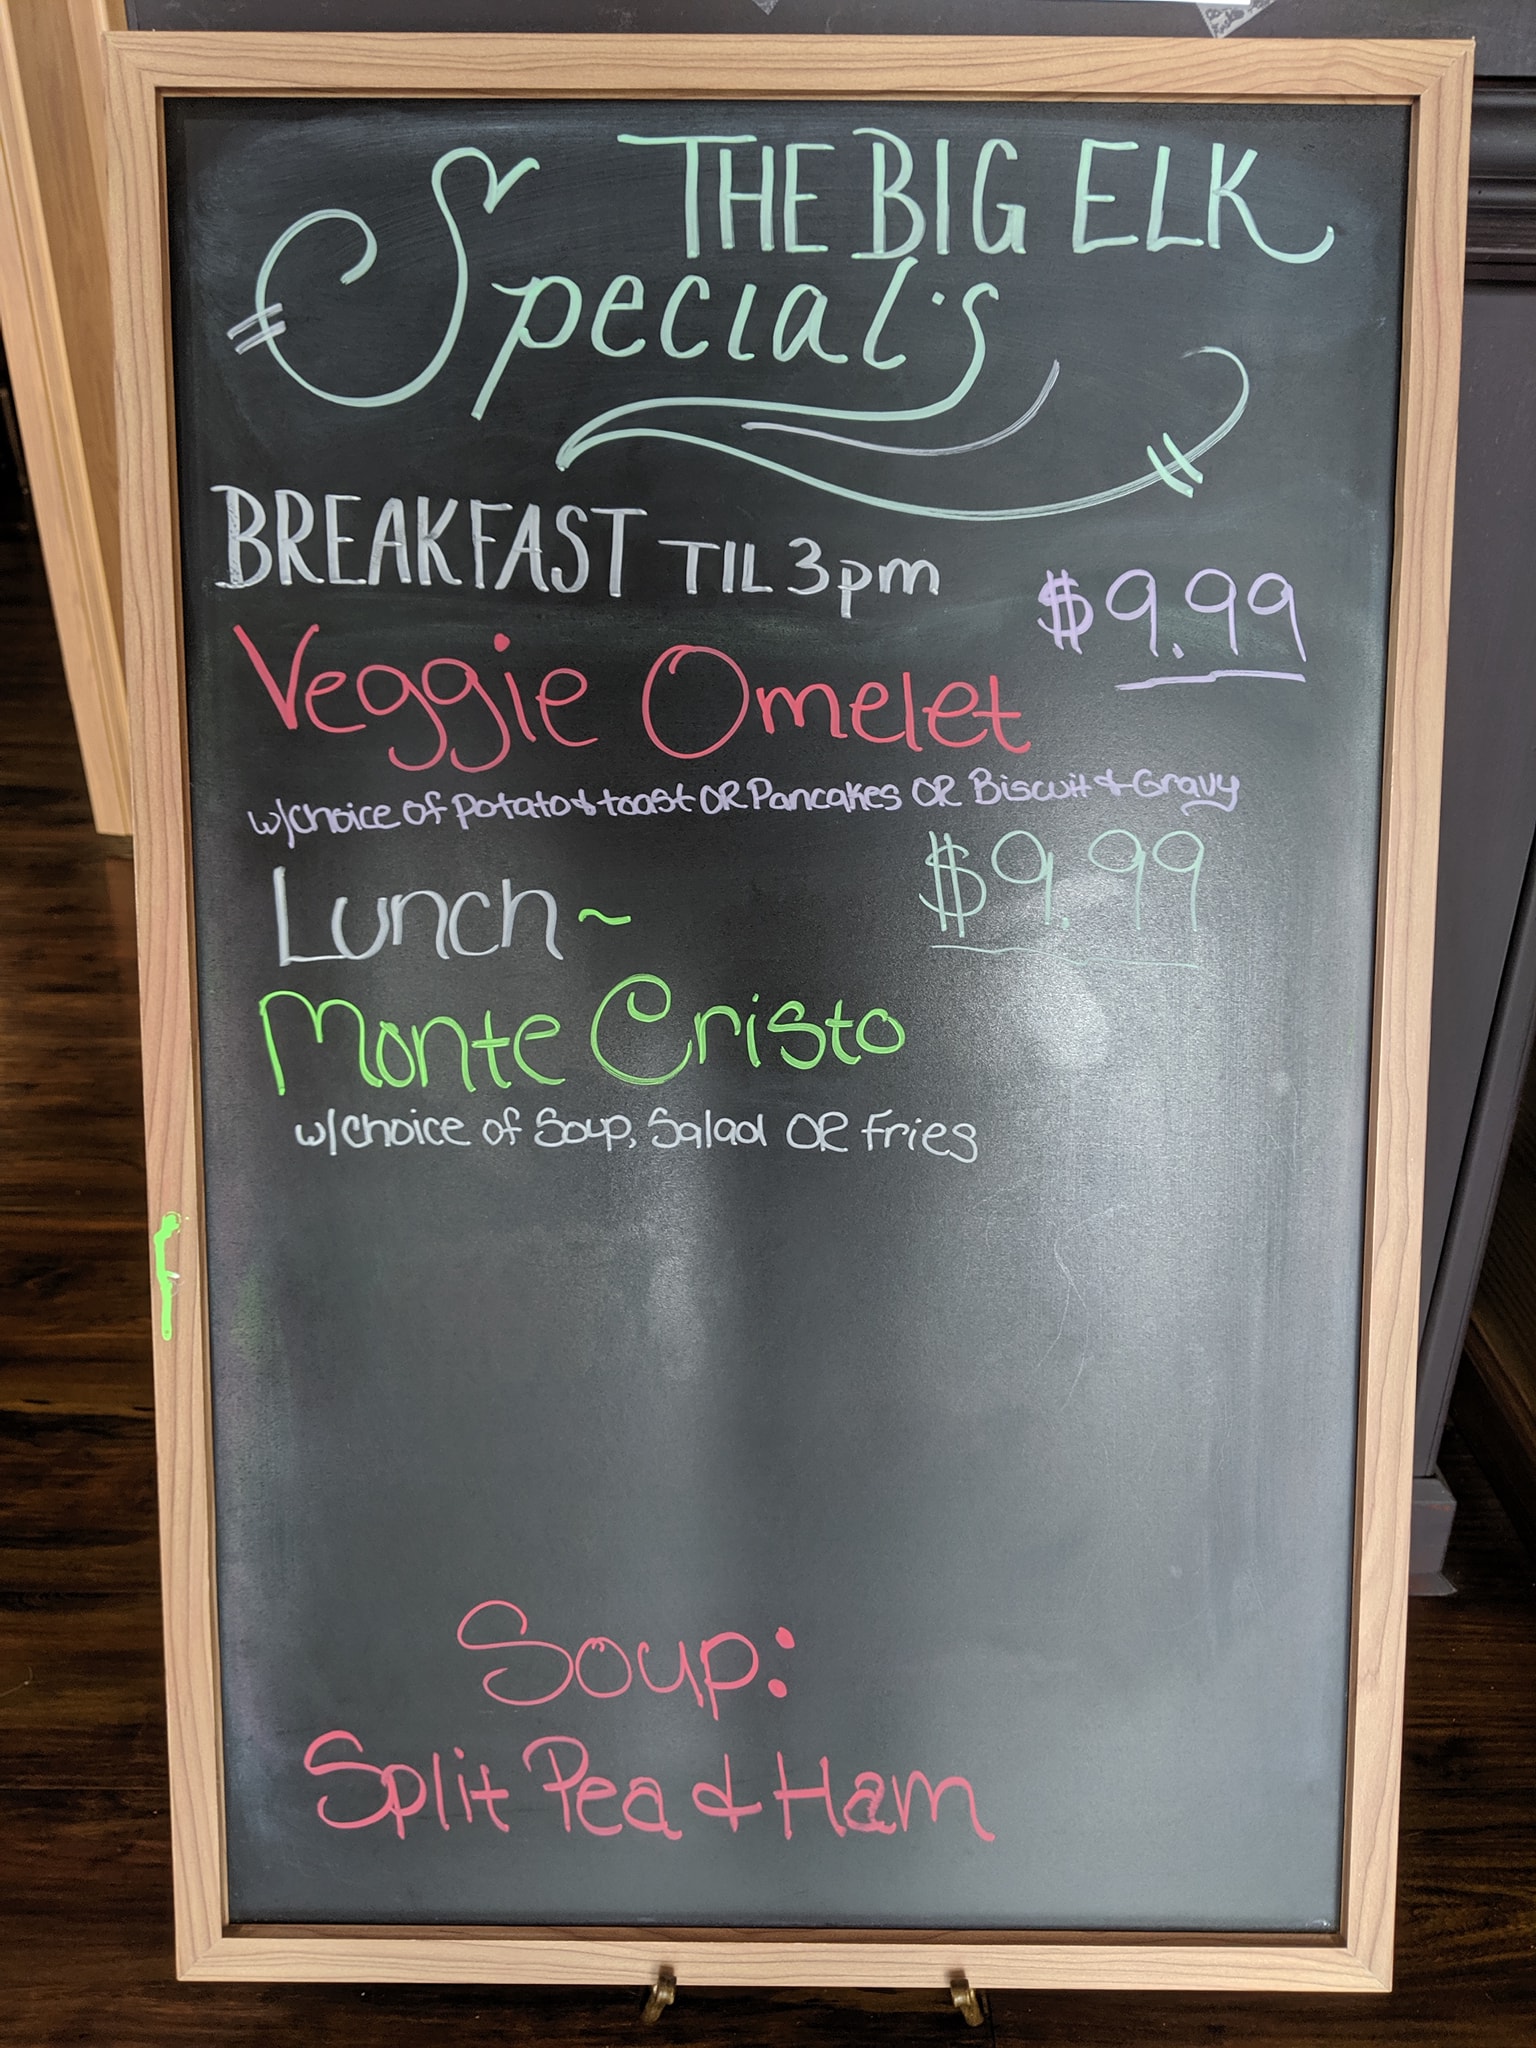 THE BIG ELK
Special's
BREAKFAST TIL 3pm
$9.99
Veggie Omelet
w/choice of potato & toast OR Pancakes OR Biscuit & Gravy
Lunch~ $9.99
Monte Cristo
w/choice of Soup, Salad OR Fries
Soup:
Split Pea & Ham